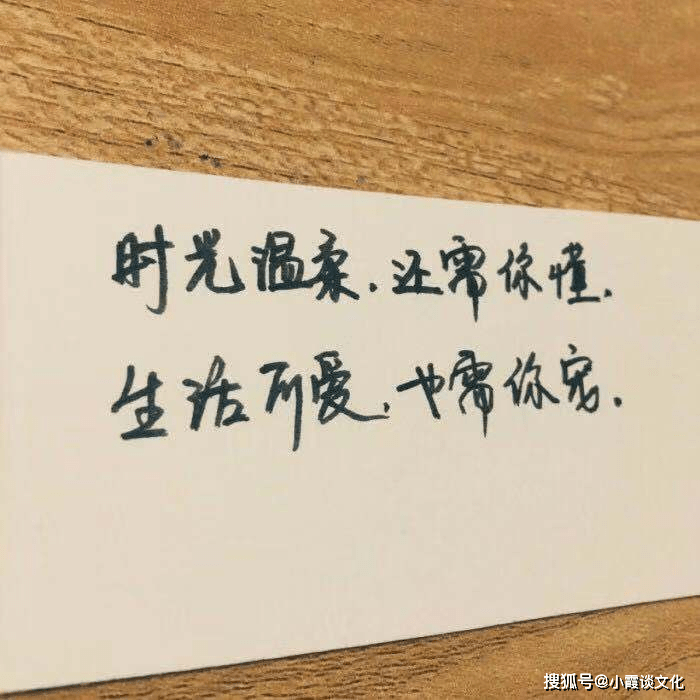 时光温柔.还需你懂.
生活可爱,也需你宠.
搜狐号@小霞谈文化